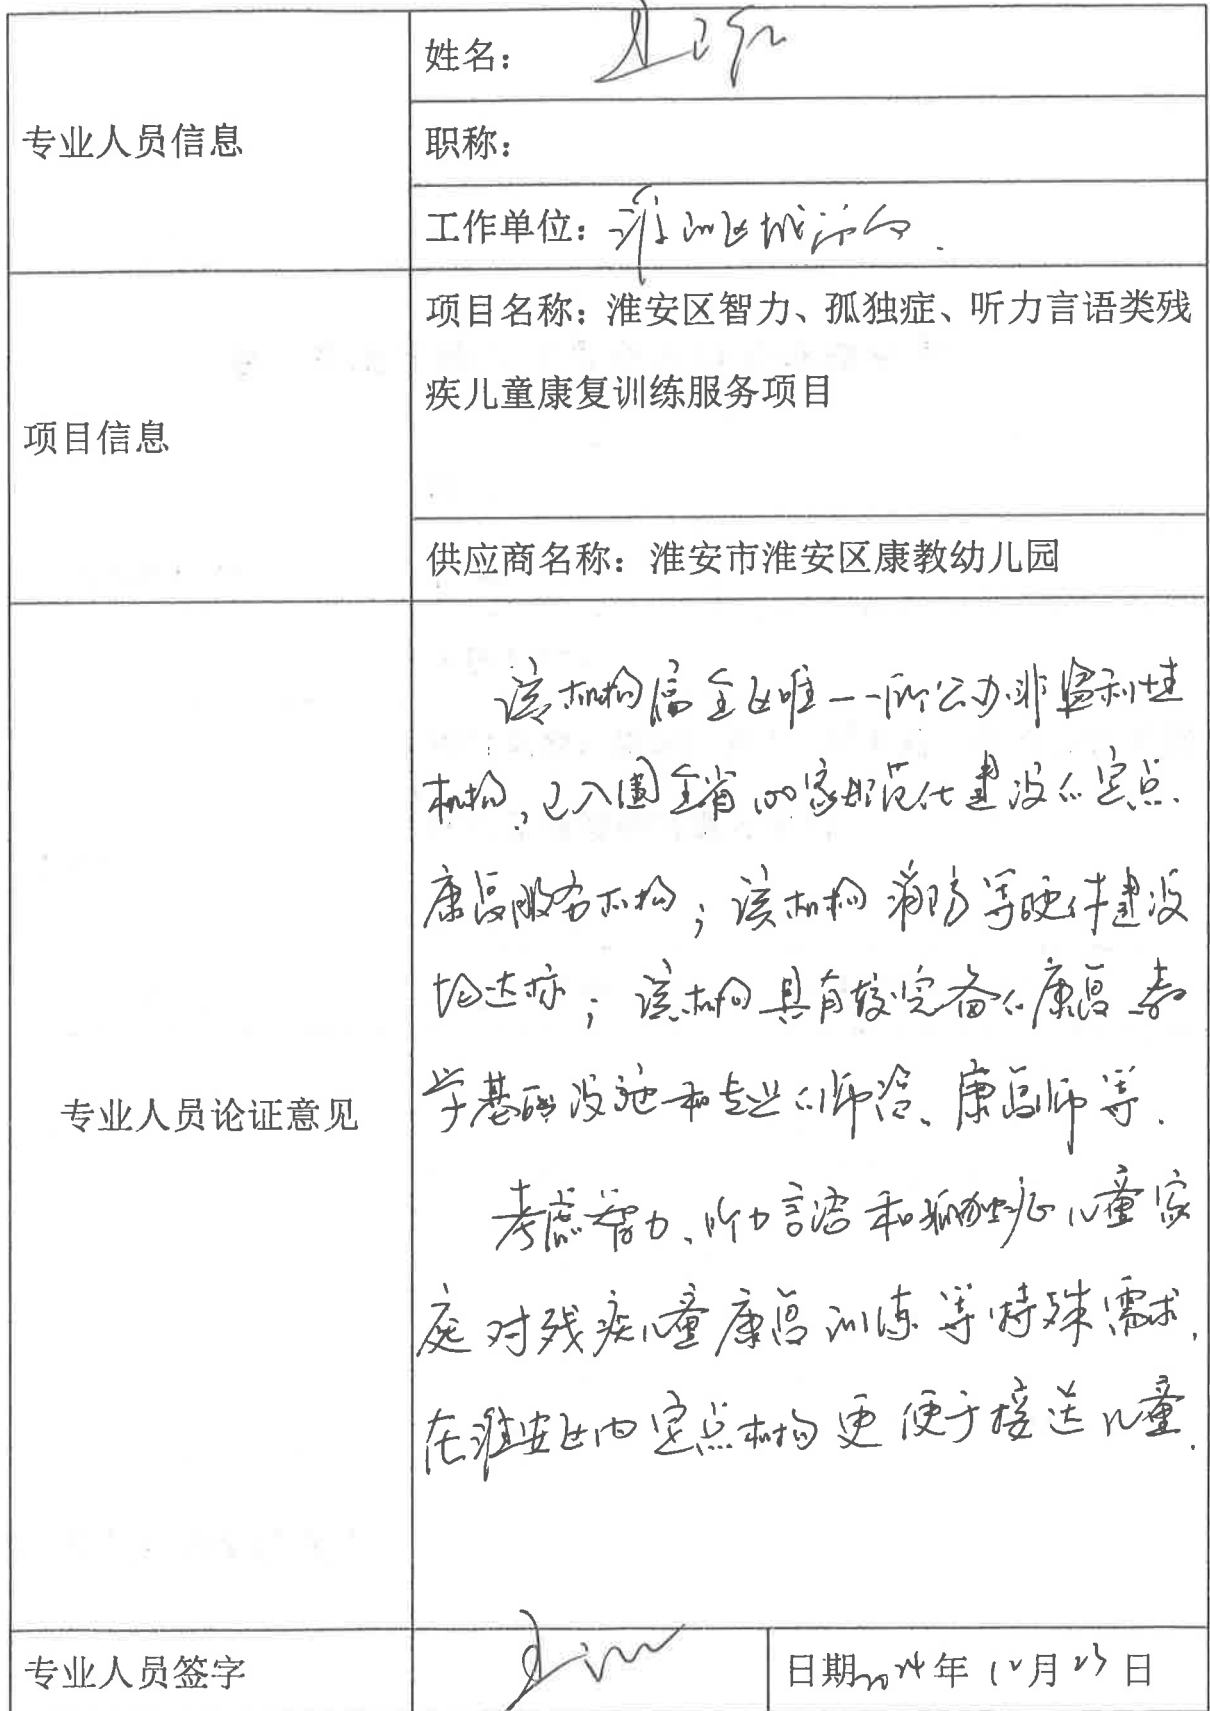 姓名：
专业人员信息
职称：
工作单位：
项目名称：淮安区智力、孤独症、听力言语类残
疾儿童康复训练服务项目
项目信息
供应商名称：淮安市淮安区康教幼儿园
该机构属全区唯一一所公办非营利性
机构，已入围全省100家规范化建设的定点
康复服务机构；该机构消防等硬件建设
均达标；该机构具有较完备的康复教
学基础设施和专业的师资、康复师等.
专业人员论证意见
考虑智力、听力言语和孤独症儿童家
庭对残疾儿童康复训练等特殊需求，
在淮安区内定点机构更便于接送儿童.
专业人员签字
日期2024年12月23日